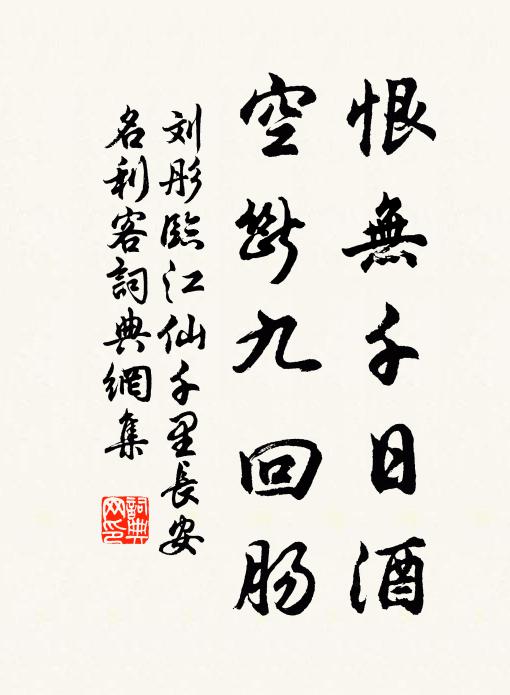 恨無千日酒
空斷九回肠
刘彤臨江仙千里長安
名利客詞典網集
詞典
网印